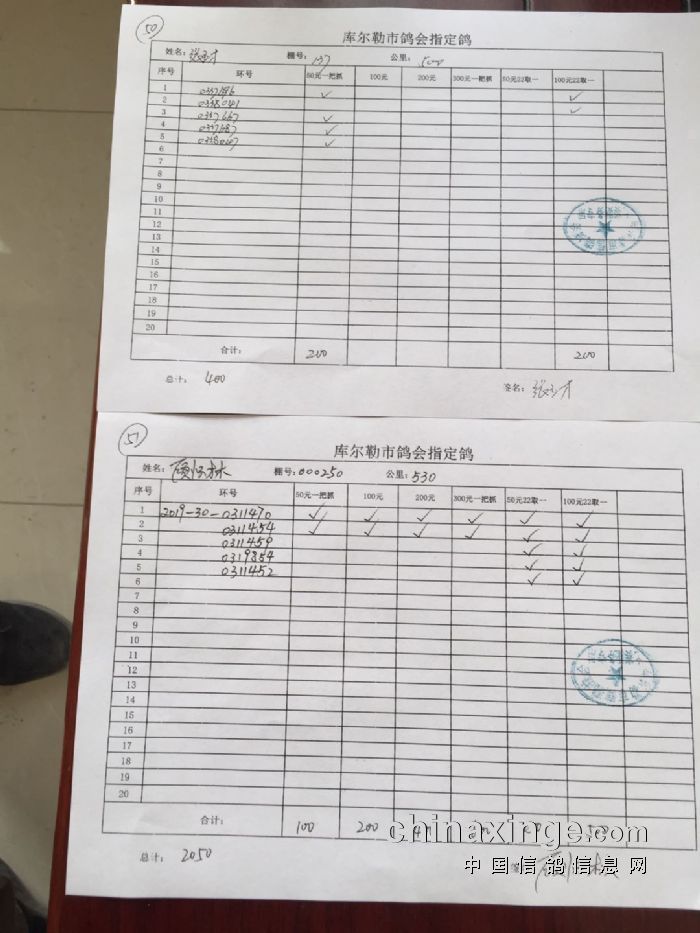 50
库尔勒市鸽会指定鸽
姓名： 棚号：137 公里：500
序号 环号 50元一把抓 100元 200元 300元一把抓 50元22取一 100元22取一
1 ✓
2 0338041 ✓
3 0337667 ✓
4 ✓
5 ✓
6
7
8
9
10
11
12
13
14
15
16
17
18
19
20
合计： 200 200
总计： 400 签名：
51
库尔勒市鸽会指定鸽
姓名： 棚号：000250 公里：530
序号 环号 50元一把抓 100元 200元 300元一把抓 50元22取一 100元22取一
1 2019-30-0311470 ✓ ✓ ✓ ✓ ✓ ✓
2 0311454 ✓ ✓ ✓ ✓ ✓ ✓
3 0311459 ✓ ✓
4 0319854 ✓ ✓
5 0311452 ✓ ✓
6
7
8
9
10
11
12
13
14
15
16
17
18
19
20
合计： 100 200
总计： 2050
chinaxinge.com
中国信鸽信息网